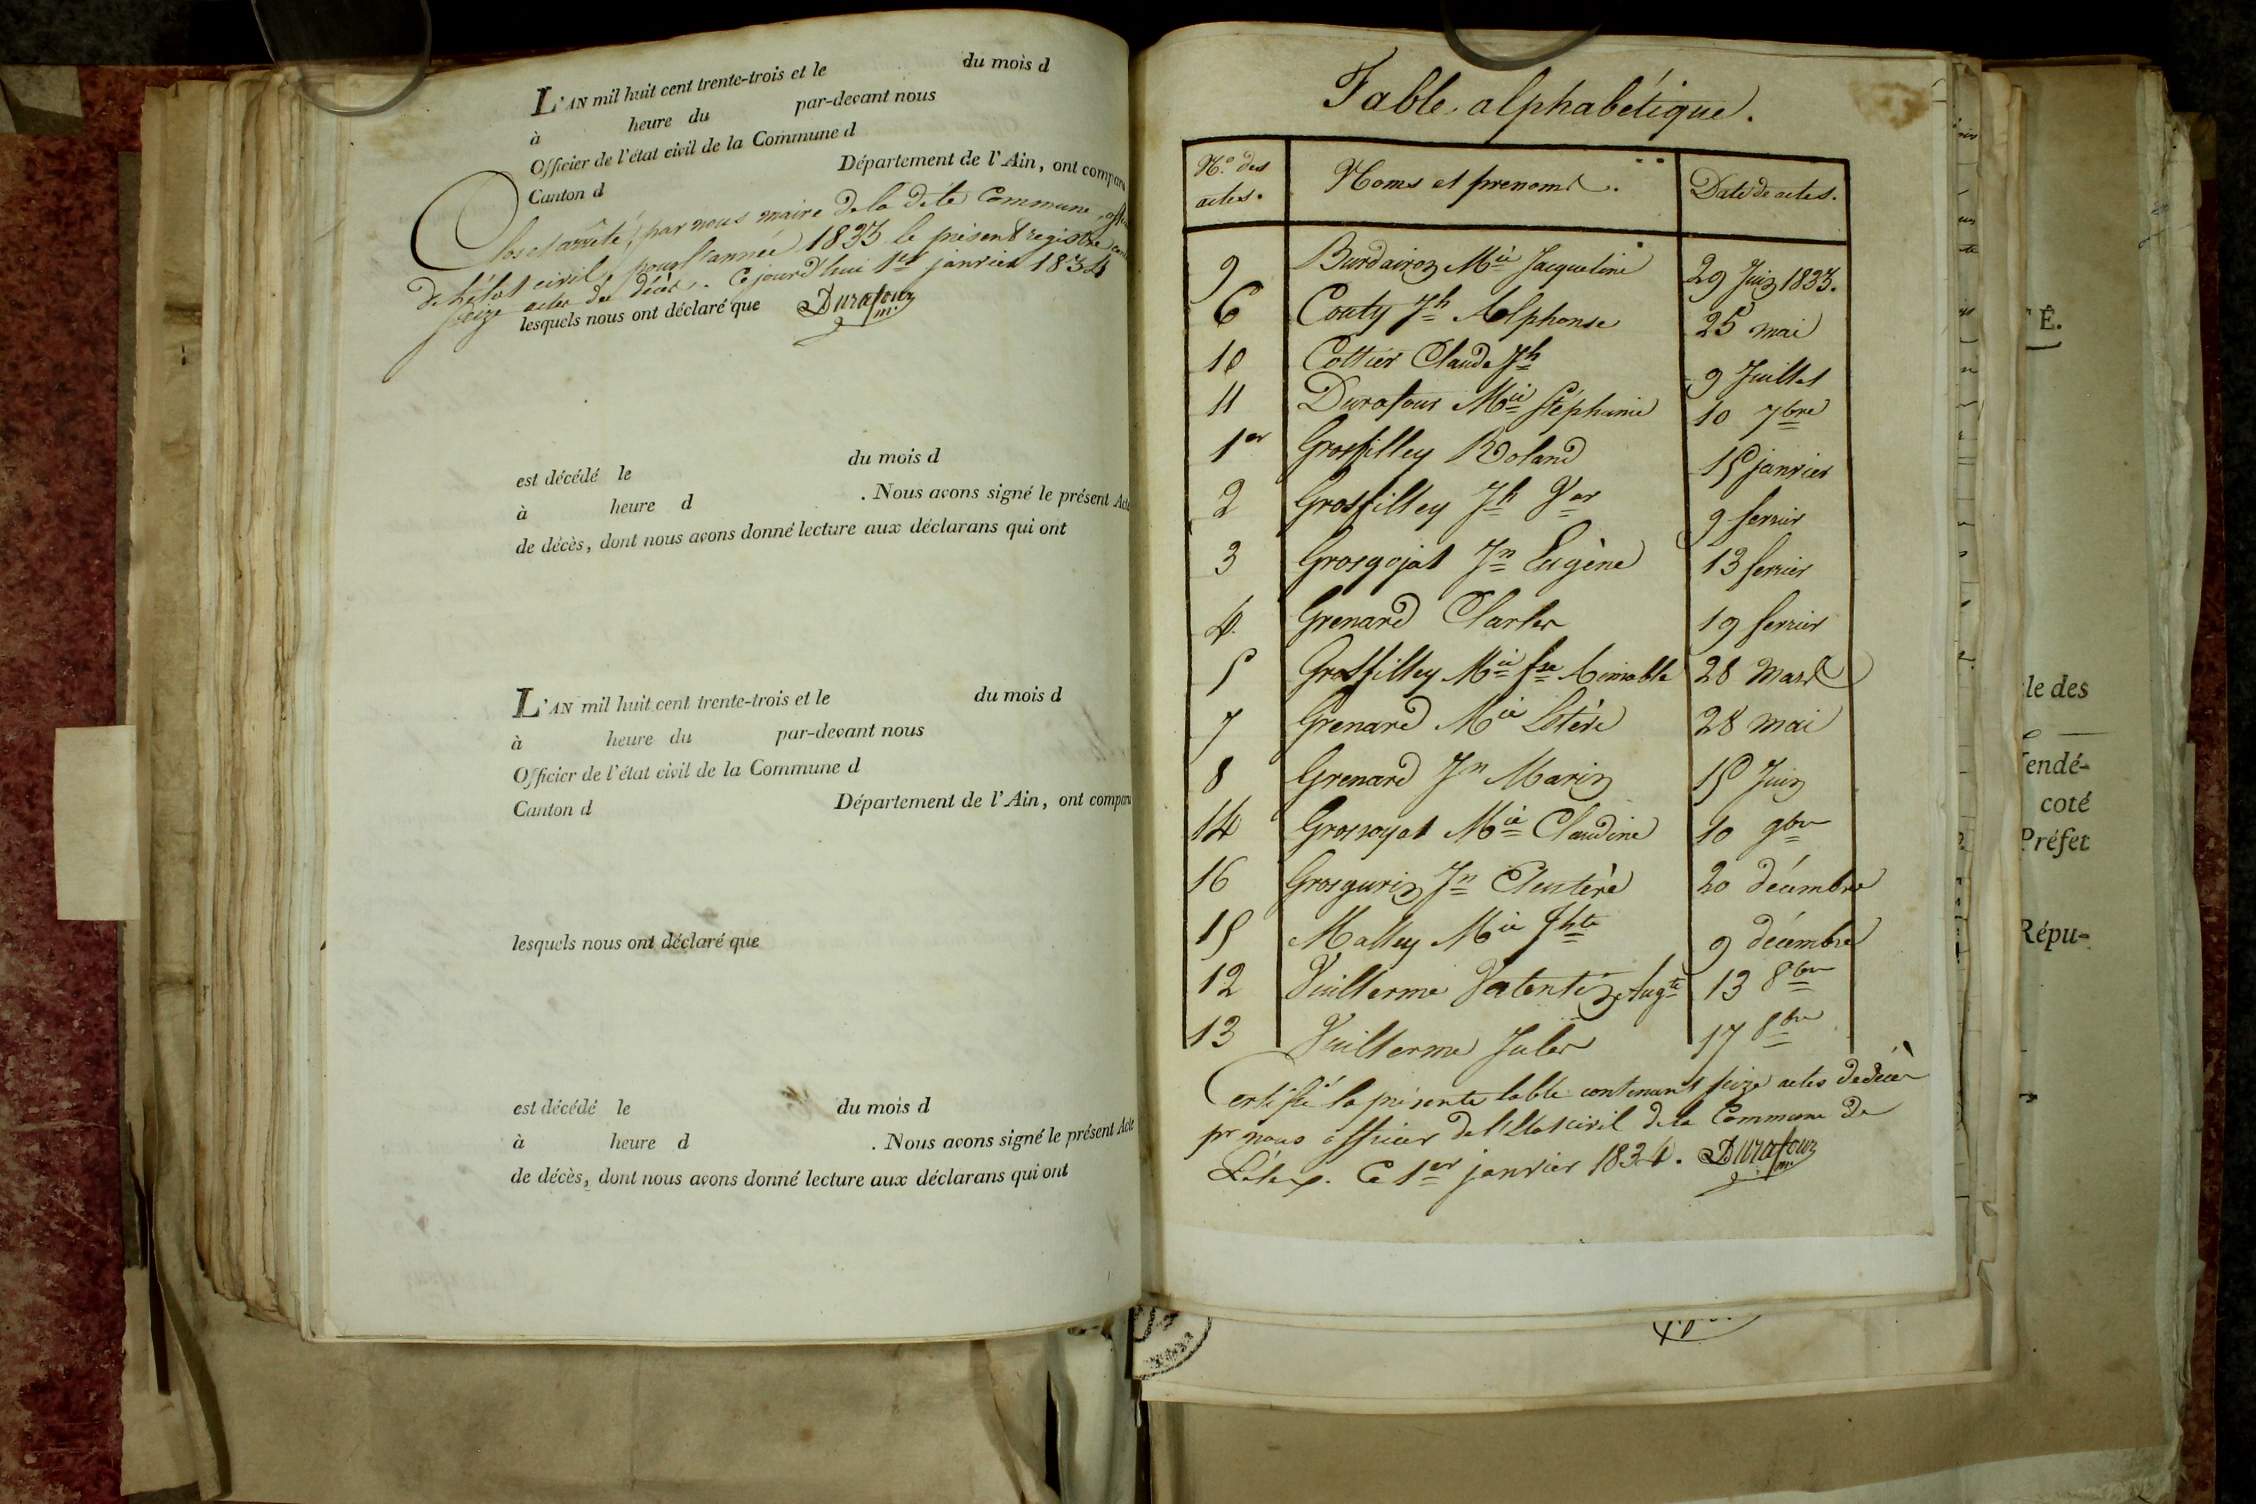 L'AN mil huit cent trente-trois et le du mois d
à heure du par-devant nous
Officier de l'état civil de la Commune d
Canton d Département de l'Ain, ont comparu
Clos et arrêté, par nous maire de la dite Commune
de l'état civil, pour l'année 1833 le présent registre
seize actes de décès. Ce jourd'hui 1er janvier 1834
lesquels nous ont déclaré que Durafour
est décédé le du mois d
à heure d . Nous avons signé le présent Acte
de décès, dont nous avons donné lecture aux déclarans qui ont
L'AN mil huit cent trente-trois et le du mois d
à heure du par-devant nous
Officier de l'état civil de la Commune d
Canton d Département de l'Ain, ont comparu
lesquels nous ont déclaré que
est décédé le du mois d
à heure d . Nous avons signé le présent Acte
de décès, dont nous avons donné lecture aux déclarans qui ont
Table alphabétique.
N.o des actes. Noms et prenoms. Date de actes.
9 Burdairon Mie Jacqueline 29 Juin 1833.
6 Couty Jh Alphonse 25 mai
10 Cottier Claude Jh 9 Juillet
11 Durafour Mie Stéphanie 10 7bre
1er Grosfilley Roland 15 janvier
2 Grosfilley Jh Xer 9 fevrier
3 Grosgojat Jn Eugène 13 fevrier
4. Grenard Charles 19 fevrier
5 Grosfilley Mie fse Aimable 28 Mars
7 Grenard Mie 28 mai
8 Grenard Jn Marin 15 Juin
14 Grosroyat Mie Claudine 10 9bre
16 Grosgurin Jn Eleutère 20 décembre
15 Malley Mie Jhte 9 décembre
12 Vuillerme Valentin Augte 13 8bre
13 Vuillerme Jules 17 8bre
Certifié la présente table contenant seize actes de décès
pr nous officier de l'état civil de la Commune de
Lélex. Ce 1er janvier 1834. Durafour
É.
le des
endé-
coté
Préfet
Répu-